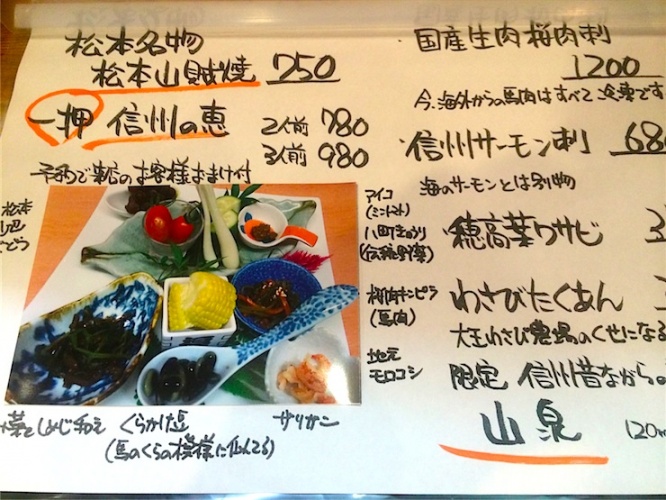 松本名物
松本山賊焼 750
一押 信州の恵 2人前 780
3人前 980
予約で来店のお客様おまけ付
松本
アイコ
(ミニトマト)
八町きゅうり
(伝統野菜)
桜肉キンピラ
(馬肉)
地元
モロコシ
しめじ和え
くらかけ豆
(馬のくらの模様に似てる)
サリガニ
国産生肉桜肉刺
1200
今、海外からの馬肉はすべて冷凍です
信州サーモン刺 680
海のサーモンとは別物
穂高葉ワサビ
わさびたくあん
大王わさび農場のくせになる
限定 信州昔ながらの
山泉